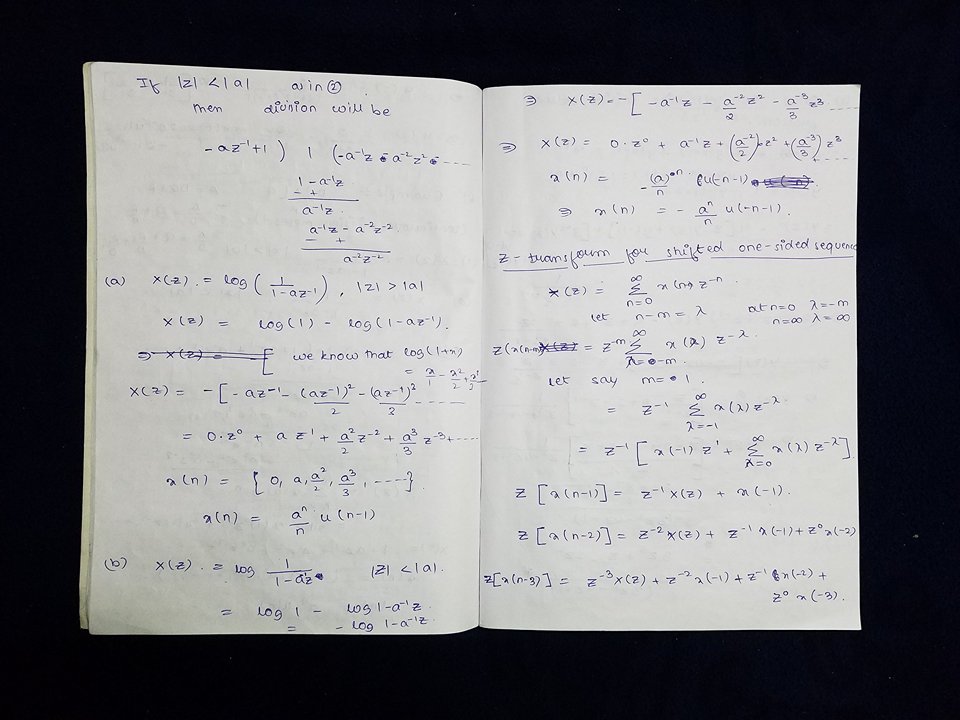 If |z| < |a| in ②
then division will be
-az⁻¹+1 ) 1 ( -a⁻¹z - a⁻²z² - ----
1 - a⁻¹z
- +
a⁻¹z
a⁻¹z - a⁻²z⁻²
- +
a⁻²z⁻²
(a) X(z) = log ( 1/(1-az⁻¹) ), |z| > |a|
X(z) = log(1) - log(1-az⁻¹).
⇒ X(z) = [ we know that log(1+x)
= x/1 - x²/2 + x³/3
X(z) = -[ -az⁻¹ - (az⁻¹)²/2 - (az⁻¹)³/3 ----
= 0.z⁰ + a z⁻¹ + a²/2 z⁻² + a³/3 z⁻³ + ----
x(n) = { 0, a, a²/2, a³/3, ---- }
x(n) = aⁿ/n u(n-1)
(b) X(z) = log 1/(1-a⁻¹z) |z| < |a|.
= log 1 - log 1-a⁻¹z.
= - log 1-a⁻¹z.
⇒ X(z) = -[ -a⁻¹z - a⁻²/2 z² - a⁻³/3 z³ ----
⇒ X(z) = 0.z⁰ + a⁻¹z + (a⁻²/2).z² + (a⁻³/3) z³ ----
x(n) = -(a)ⁿ/n u(-n-1)
⇒ x(n) = - aⁿ/n u(-n-1).
Z-transform for shifted one-sided sequence
X(z) = ∞ Σ n=0 x(n) z⁻ⁿ.
let n-m = λ at n=0 λ=-m
n=∞ λ=∞
Z(x(n-m)) = z⁻ᵐ ∞ Σ λ=-m x(λ) z^-λ
let say m=1.
= z⁻¹ ∞ Σ λ=-1 x(λ) z^-λ
= z⁻¹ [ x(-1) z¹ + ∞ Σ λ=0 x(λ) z^-λ ]
Z[x(n-1)] = z⁻¹ X(z) + x(-1).
Z[x(n-2)] = z⁻² X(z) + z⁻¹ x(-1) + z⁰ x(-2)
Z[x(n-3)] = z⁻³ X(z) + z⁻² x(-1) + z⁻¹ x(-2) +
z⁰ x(-3).